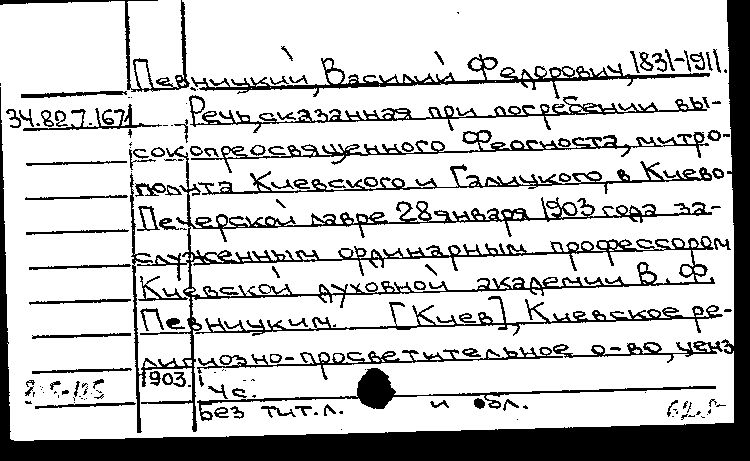 Певницкий, Василий Федорович, 1831-1911.
34.82.7.167 Речь, сказанная при погребении вы-
сокопреосвященного Феогноста, митро-
полита Киевского и Галицкого, в Киево-
Печерской лавре 28 января 1903 года за-
служенным ординарным профессором
Киевской духовной академии В. Ф.
Певницким. [Киев], Киевское ре-
лигиозно-просветительное о-во, ценз
1903.
4 с.
Без тит. л. и обл.